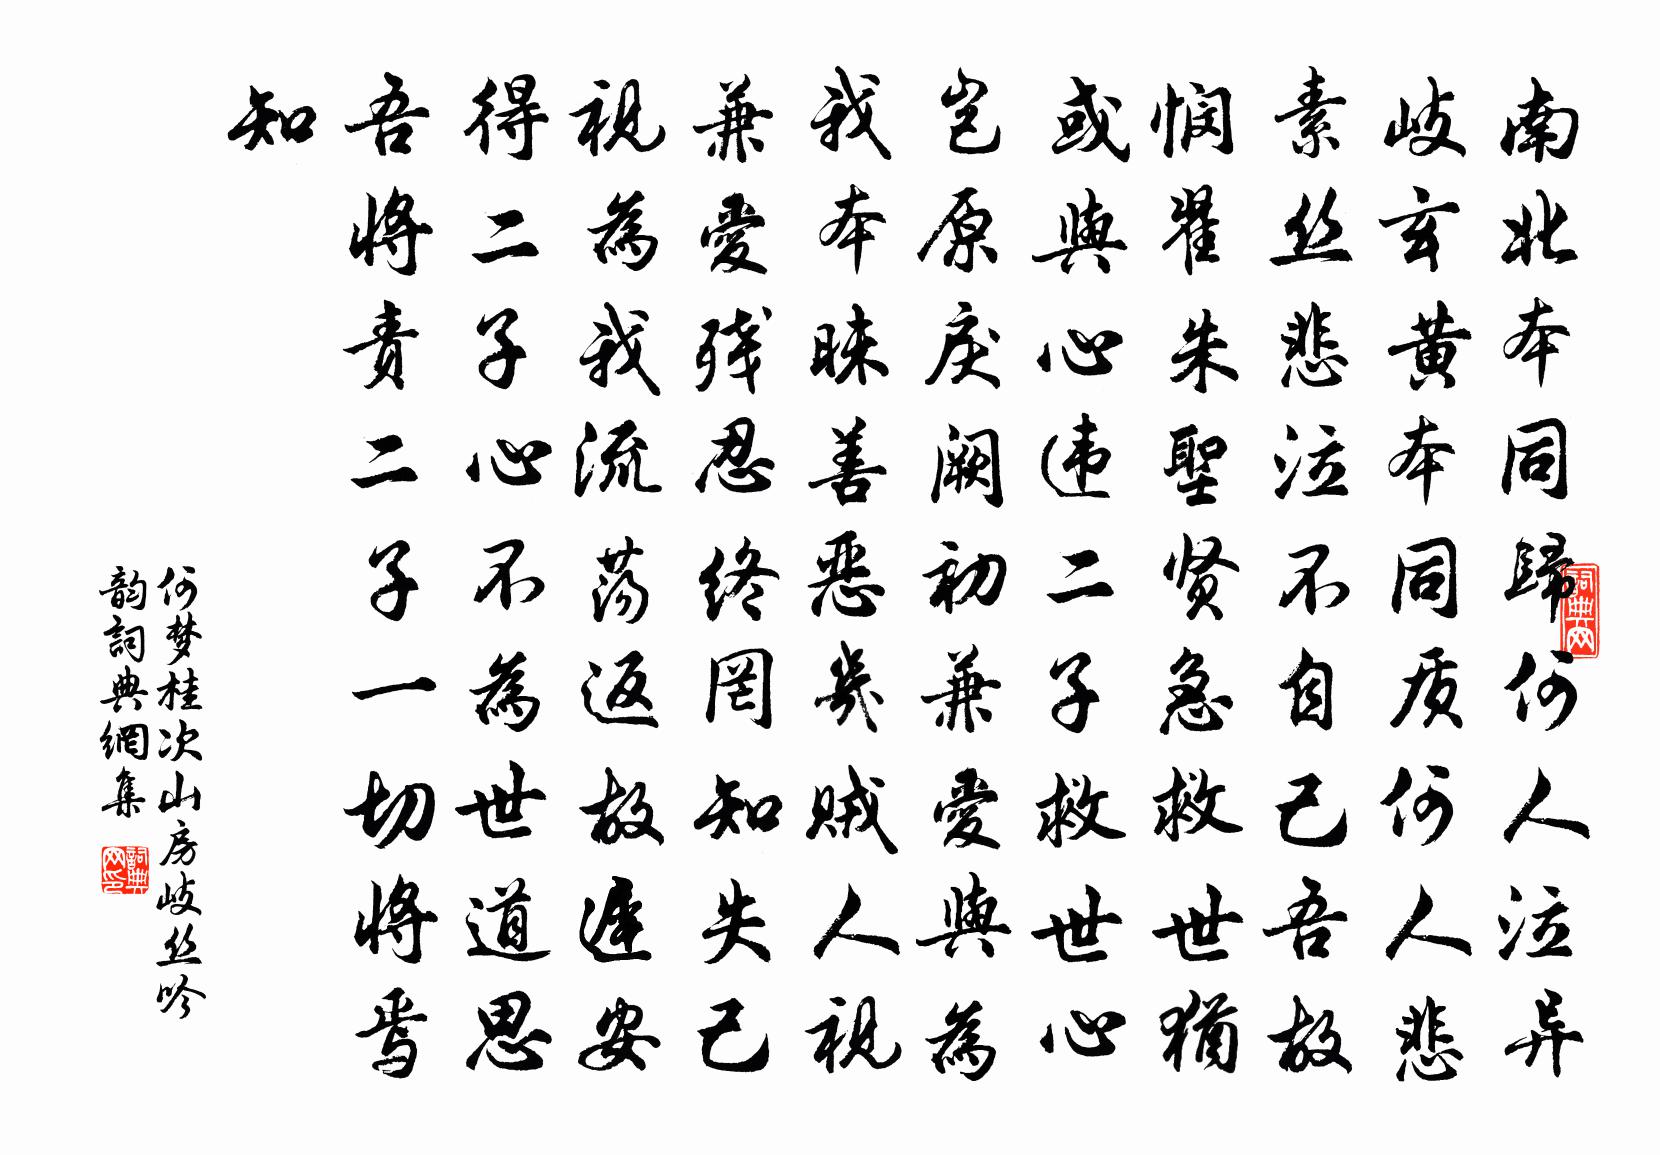 南北本同歸何人泣异
岐玄黄本同质何人悲
素丝悲泣不自已吾故
悯翟朱聖贤急救世猶
或與心违二子救世心
岂原戾阙初兼愛與為
我本昧善惡幾贼人視
兼愛残忍终罔知失己
視為我流荡返故遲安
得二子心不為世道思
吾將责二子一切將焉
知
何梦桂次山房岐丝吟
韵詞典網集
詞典网
詞典网印